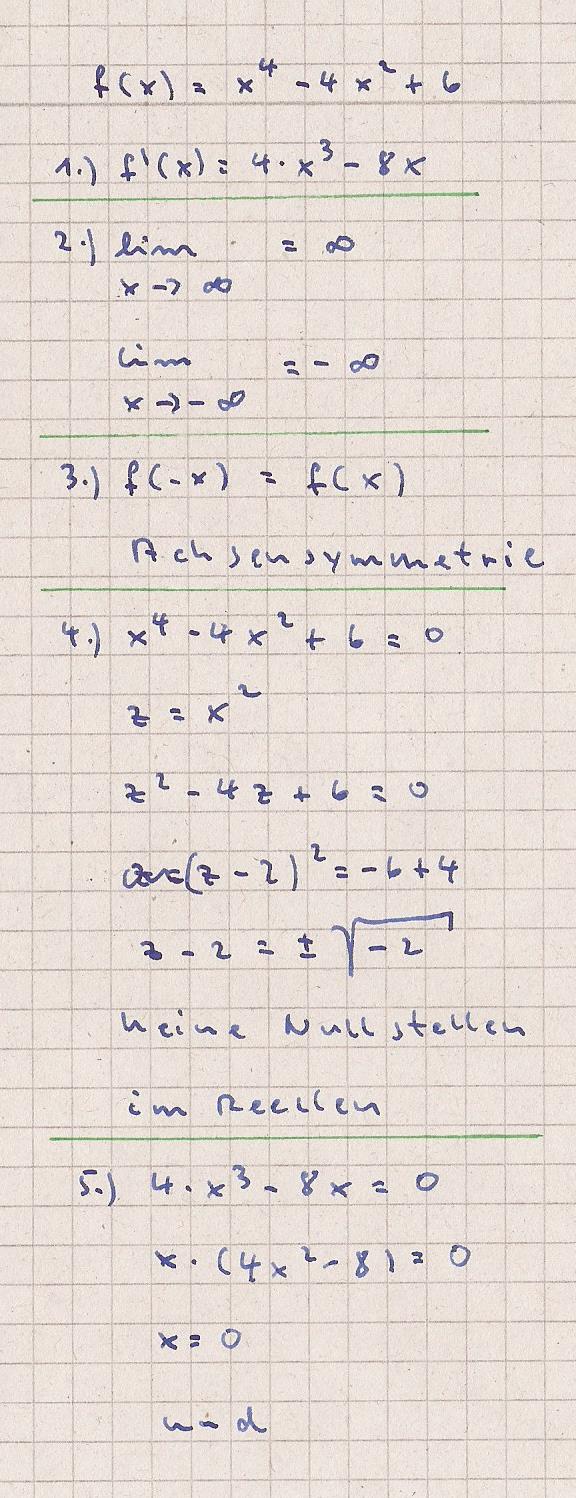 f(x) = x⁴ - 4x² + 6
1.) f'(x) = 4·x³ - 8x
2.) lim = ∞
x → ∞
lim = -∞
x → -∞
3.) f(-x) = f(x)
Achsensymmetrie
4.) x⁴ - 4x² + 6 = 0
z = x²
z² - 4z + 6 = 0
(z - 2)² = -6 + 4
z - 2 = ± √-2
keine Nullstellen
im Reellen
5.) 4·x³ - 8x = 0
x·(4x² - 8) = 0
x = 0
und